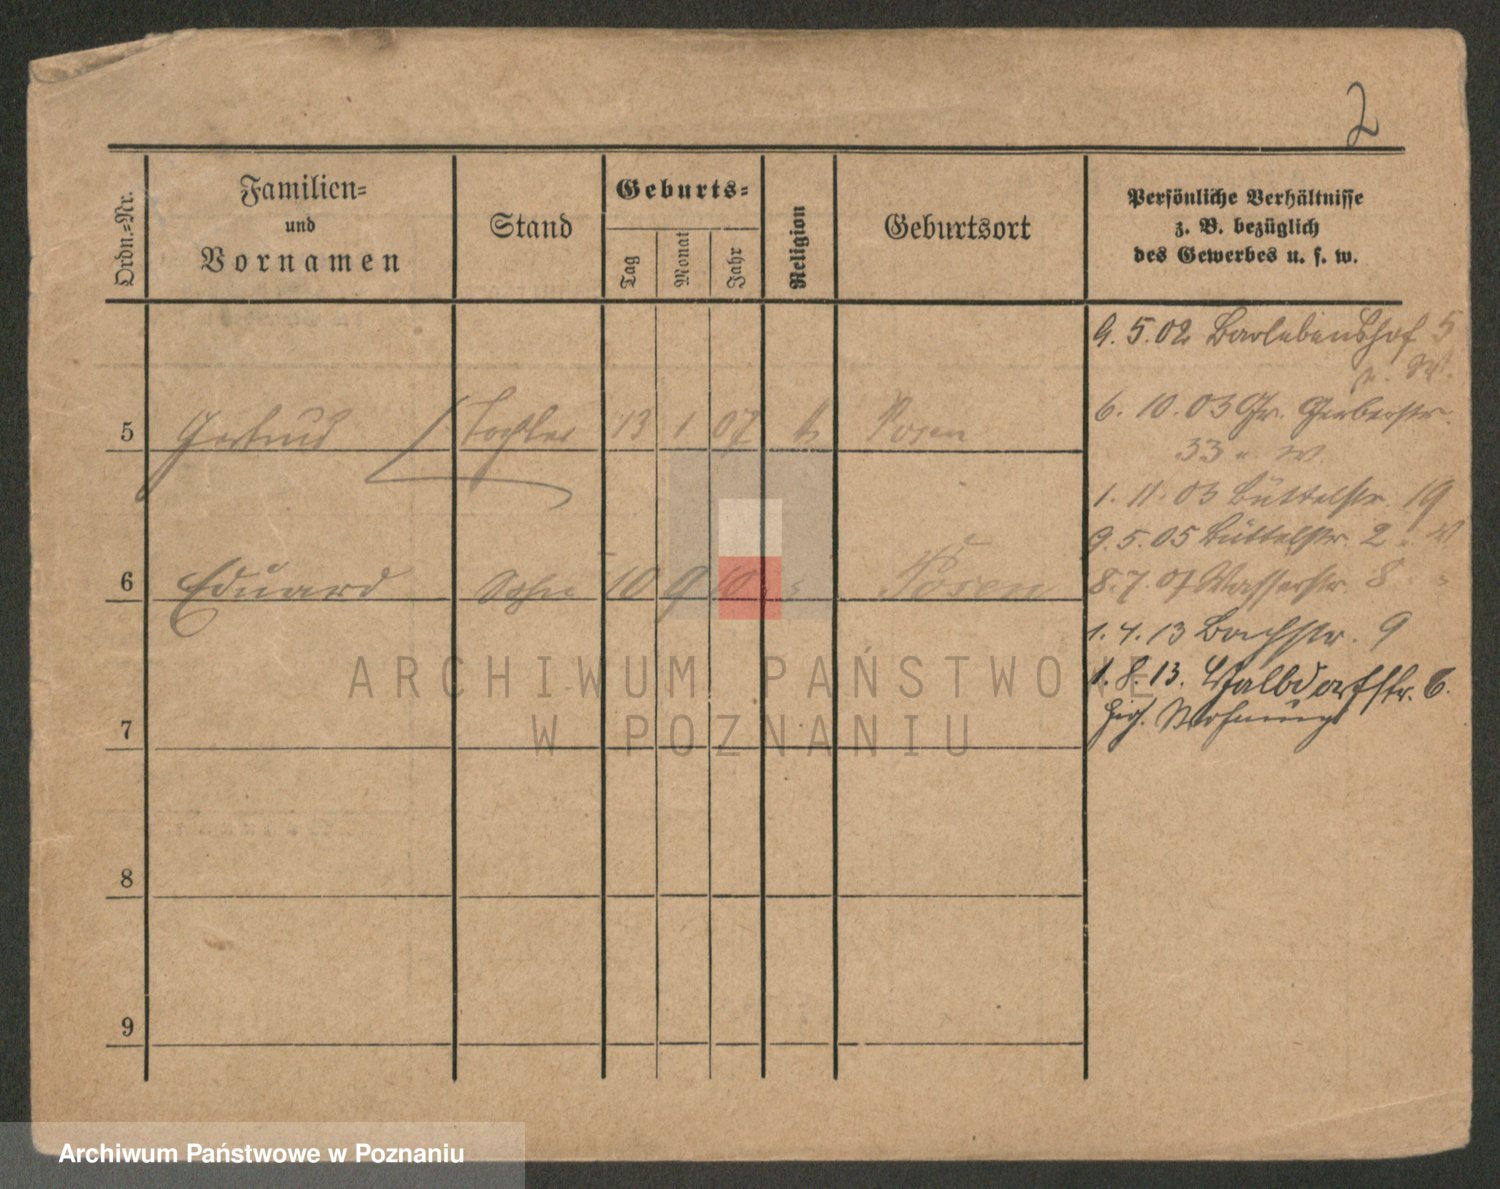 2
Ordn.-Nr.
Familien-
und
Vornamen
Stand
Geburts-
Tag
Monat
Jahr
Religion
Geburtsort
Persönliche Verhältnisse
z. B. bezüglich
des Gewerbes u. s. w.
9. 5. 02 Barlebenshof 5
W.
6. 10. 03 Gr. Gerberstr.
33 W.
5 Gertrud Tochter 13 1 07 k Posen
1. 11. 03 Büttelstr. 19
9. 5. 05 Büttelstr. 2
6 Eduard Sohn 10 9 10 Posen
8. 7. 07 Wasserstr. 8
1. 4. 13 Bachstr. 9
1. 8. 13. Walbdorfstr. 6.
Wohnung
7
8
9
ARCHIWUM PAŃSTWOWE
W POZNANIU
Archiwum Państwowe w Poznaniu